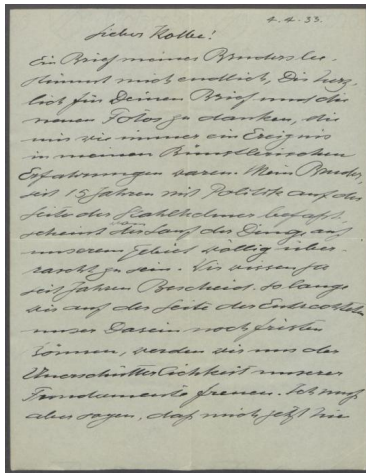 4.4.33.
Lieber Koller!
Ein Brief meines Bruders be-
stimmt mich endlich, Dir herz-
lich für Deinen Brief und die
neuen Fotos zu danken, die
mir wie immer ein Ereignis
in meinen künstlerischen
Erfahrungen waren. Mein Bruder,
seit 15 Jahren mit Politik auf der
Seite der Stahlhelmer befaßt,
scheint vom Lauf der Dinge auf
unserem Gebiet völlig über-
rascht zu sein. Wir wissen ja
seit Jahren Bescheid. So lange
wir auf der Seite der Entrechteten
unser Dasein noch fristen
können, werden wir uns der
Unerschütterlichkeit unserer
Fundamente freuen. Ich muß
aber sagen, daß mich jetzt